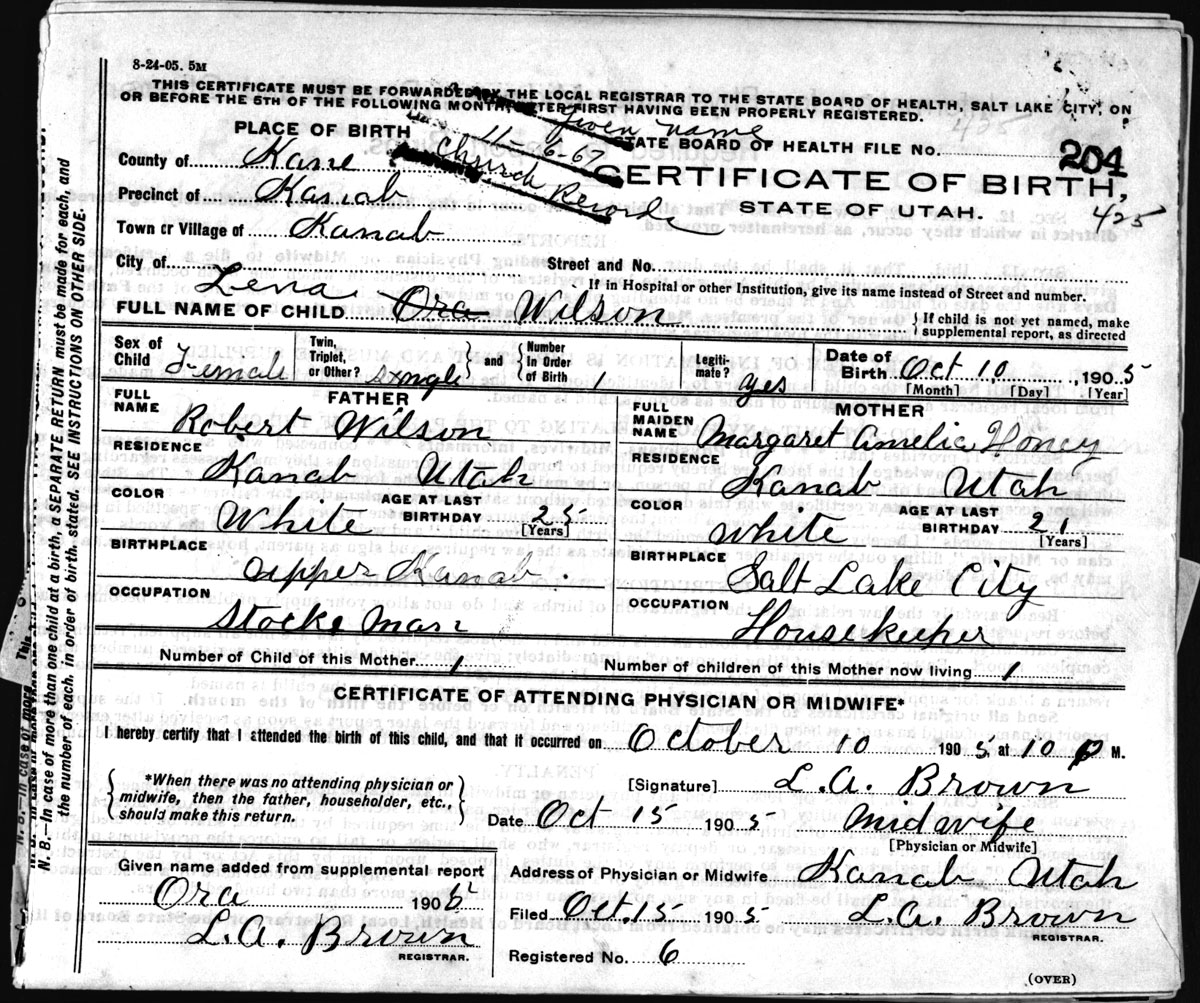 8-24-05. 5M
THIS CERTIFICATE MUST BE FORWARDED BY THE LOCAL REGISTRAR TO THE STATE BOARD OF HEALTH, SALT LAKE CITY, ON
OR BEFORE THE 5TH OF THE FOLLOWING MONTH AFTER FIRST HAVING BEEN PROPERLY REGISTERED.
425
Given name
11-6-67
Church Record
PLACE OF BIRTH
STATE BOARD OF HEALTH FILE No. 204
County of Kane
CERTIFICATE OF BIRTH,
Precinct of Kanab
STATE OF UTAH.
425
Town or Village of Kanab
City of
Street and No.
If in Hospital or other Institution, give its name instead of Street and number.
Lena
FULL NAME OF CHILD Ora Wilson
If child is not yet named, make
supplemental report, as directed
Sex of
Child Female
Twin,
Triplet,
or Other? single
and
Number
in Order
of Birth 1
Legiti-
mate? yes
Date of
Birth Oct 10, 1905
[Month] [Day] [Year]
FATHER
FULL
NAME Robert Wilson
RESIDENCE
Kanab Utah
COLOR
White
AGE AT LAST
BIRTHDAY 25
[Years]
BIRTHPLACE
Upper Kanab.
OCCUPATION
Stock Man
MOTHER
FULL
MAIDEN
NAME Margaret Amelia Honey
RESIDENCE
Kanab Utah
COLOR
White
AGE AT LAST
BIRTHDAY 21
[Years]
BIRTHPLACE
Salt Lake City
OCCUPATION
Housekeeper
Number of Child of this Mother 1
Number of children of this Mother now living 1
CERTIFICATE OF ATTENDING PHYSICIAN OR MIDWIFE*
I hereby certify that I attended the birth of this child, and that it occurred on October 10 1905 at 10 P M.
*When there was no attending physician or
midwife, then the father, householder, etc.,
should make this return.
[Signature] L. A. Brown
Date Oct 15 1905 Midwife
[Physician or Midwife]
Given name added from supplemental report
Ora 190
L. A. Brown
REGISTRAR.
Address of Physician or Midwife Kanab Utah
Filed Oct. 15 1905 L. A. Brown
REGISTRAR.
Registered No. 6
(OVER)
N. B.—In case of more than one child at a birth, a SEPARATE RETURN must be made for each, and
the number of each, in order of birth, stated. SEE INSTRUCTIONS ON OTHER SIDE.